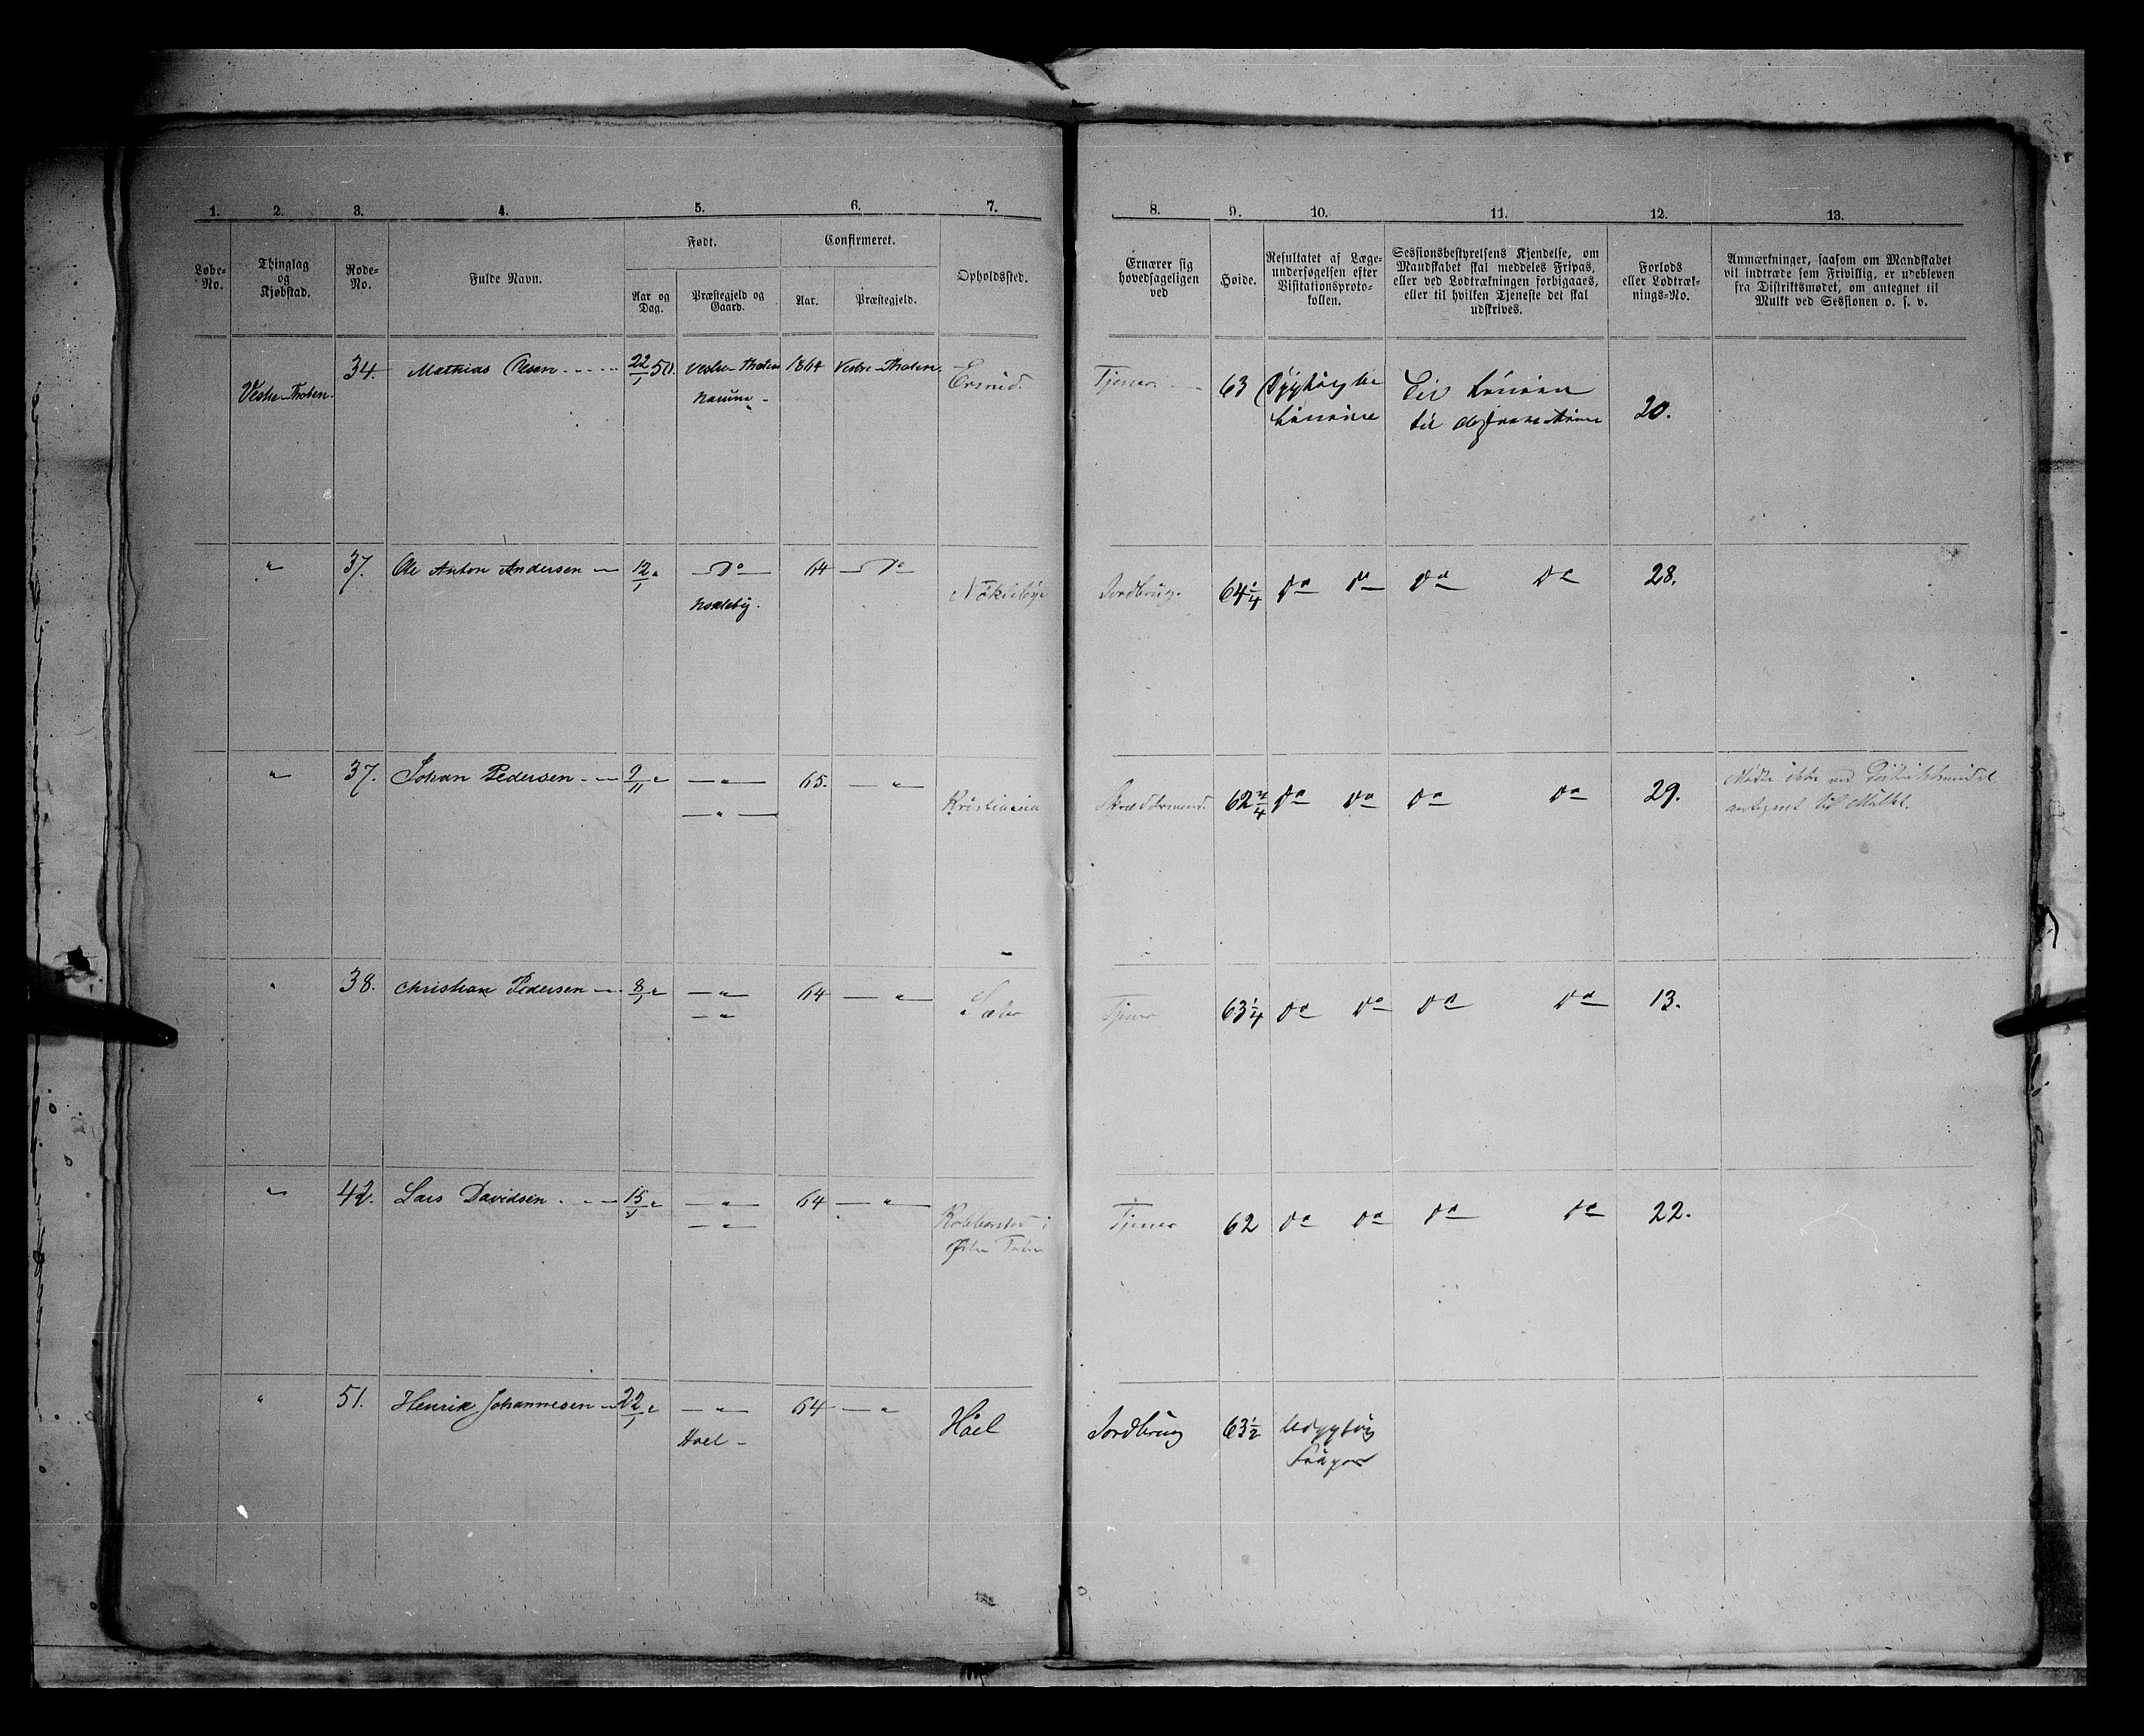 1. 2. 3. 4. 5. 6. 7.
Løbe-No.
Thinglag og Kjøbstad.
Rode-No.
Fulde Navn.
Født.
Aar og Dag.
Præstegjeld og Gaard.
Confirmeret.
Aar.
Præstegjeld.
Opholdssted.
8. 9. 10. 11. 12. 13.
Ernærer sig hovedsageligen ved
Høide.
Resultatet af Læge-undersøgelsen efter Visitationsproto-kollen.
Sessionsbestyrelsens Kjendelse, om Mandskabet skal meddeles Fripas, eller ved Lodtrækningen forbigaaes, eller til hvilken Tjeneste det skal udskrives.
Forlods eller Lodtræk-nings-No.
Anmærkninger, saasom om Mandskabet vil indtræde som Frivillig, er udebleven fra Distriktsmødet, om antegnet til Mulkt ved Sessionen o. s. v.
Vestre-Thoten. 34. Mathias Olsen 22/1 50. Vestre-Thoten 1864 Vestre-Thoten. Ersrud. Tjener 63 20.
" 37. Ole Anton Andersen 12/1 " Do 64 Do Jordbrug. 64 1/4 Do Do Do Do 28.
" 37. Johan Pedersen 9/11 " " " 65. " Kristiania Skræddersvend. 62 3/4 Do Do Do Do 29. Mødte ikke ved Distriktsmødet
antegnet til Mulkt.
" 38. Christian Pedersen 8/1 " " " 64 " Tjener 63 1/4 Do Do Do Do 13.
" 42. Lars Davidsen 15/1 " " " 64 " i
Østre Toten Tjener 62 Do Do Do Do 22.
" 51. Henrik Johannesen 22/1 " " Hoel 64 " Hoel Jordbrug 63 1/2